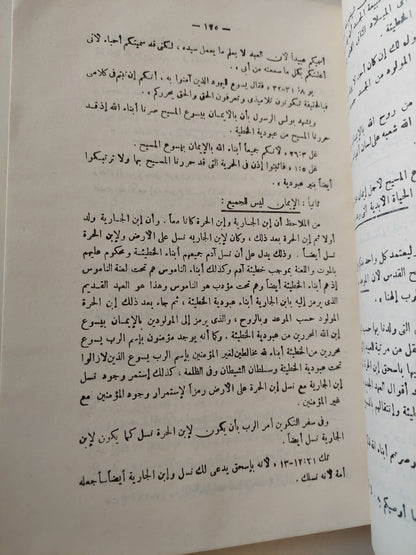 — ١٣٥ —
أسميكم عبيداً لأن العبد لا يعلم ما يعمل سيده ، لكنى قد سميتكم أحباء . لأنى
أعلمتكم بكل ما سمعته من أبى » .
يو ٨ : ٣١-٣٢ « فقال يسوع لليهود الذين آمنوا به ، أنكم إن ثبتم فى كلامى
فبالحقيقة تكونون تلاميذى وتعرفون الحق والحق يحرركم » .
ويشهد بولس الرسول بأن بالايمان بيسوع المسيح صرنا أبناء الله إذ قد
حررنا المسيح من عبودية الخطية .
غل ٣ : ٢٦ « لأنكم جميعاً أبناء الله بالإيمان بيسوع المسيح .
غل ٥ : ١ « فاثبتوا إذن فى الحرية التى قد حررنا المسيح بها ولا ترتبكوا
أيضاً بنير عبودية » .
ثانياً : الإيمان ليس للجميع :
من الملاحظ أن إبن الجارية وإبن الحرة كانا معاً . وأن إبن الجارية ولد
أولا ثم إبن الحرة بعد ذلك ، وكان لإبن الجاريه نسل على الأرض ولإبن الحرة
نسل أيضاً . وذلك يدل على أن نسل آدم جميعهم أبناء الخطيئة ومحكوم عليهم
بالموت واللعنة بموجب خطيئة آدم وكذلك أبناء الناموس هم تحت لعنة الناموس
وعبودية الخطيئة أيضاً وهم تحت مؤدب هو الناموس وهذا هو العهد القديم
الذى يرمز إليه بابن الجارية أبناء عبودية الخطيئة ، ثم جاء بعد ذلك إبن الحرة
المولود حسب الموعد وبالروح ، والذى يرمز إلى المولودين بالإيمان بيسوع
إبن الله المحررين من عبودية الخطيئة . وكما أنه يوجد مؤمنين بإسم الرب يسوع
محررين من الخطيئة أبناء لله مخالطين لغير المؤمنين بإسم الرب يسوع الذين لازالوا
تحت عبودية الخطيئة وسلطان الشيطان وفى الظلمة ، كذلك إستمر وجود نسل
إبن الجارية مع نسل إبن الحرة على الأرض رمزاً لإستمرار وجود المؤمنين مع
غير المؤمنين .
وفى سفر التكوين أمر الرب بأن يكون لإبن الحرة نسل كما يكون لإبن
الجارية نسل أيضاً .
تك ٢١ : ١٢-١٣ « لأنه بإسحق يدعى لك نسل وإبن الجارية أيضاً سأجعله
أمة لأنه نسلك .